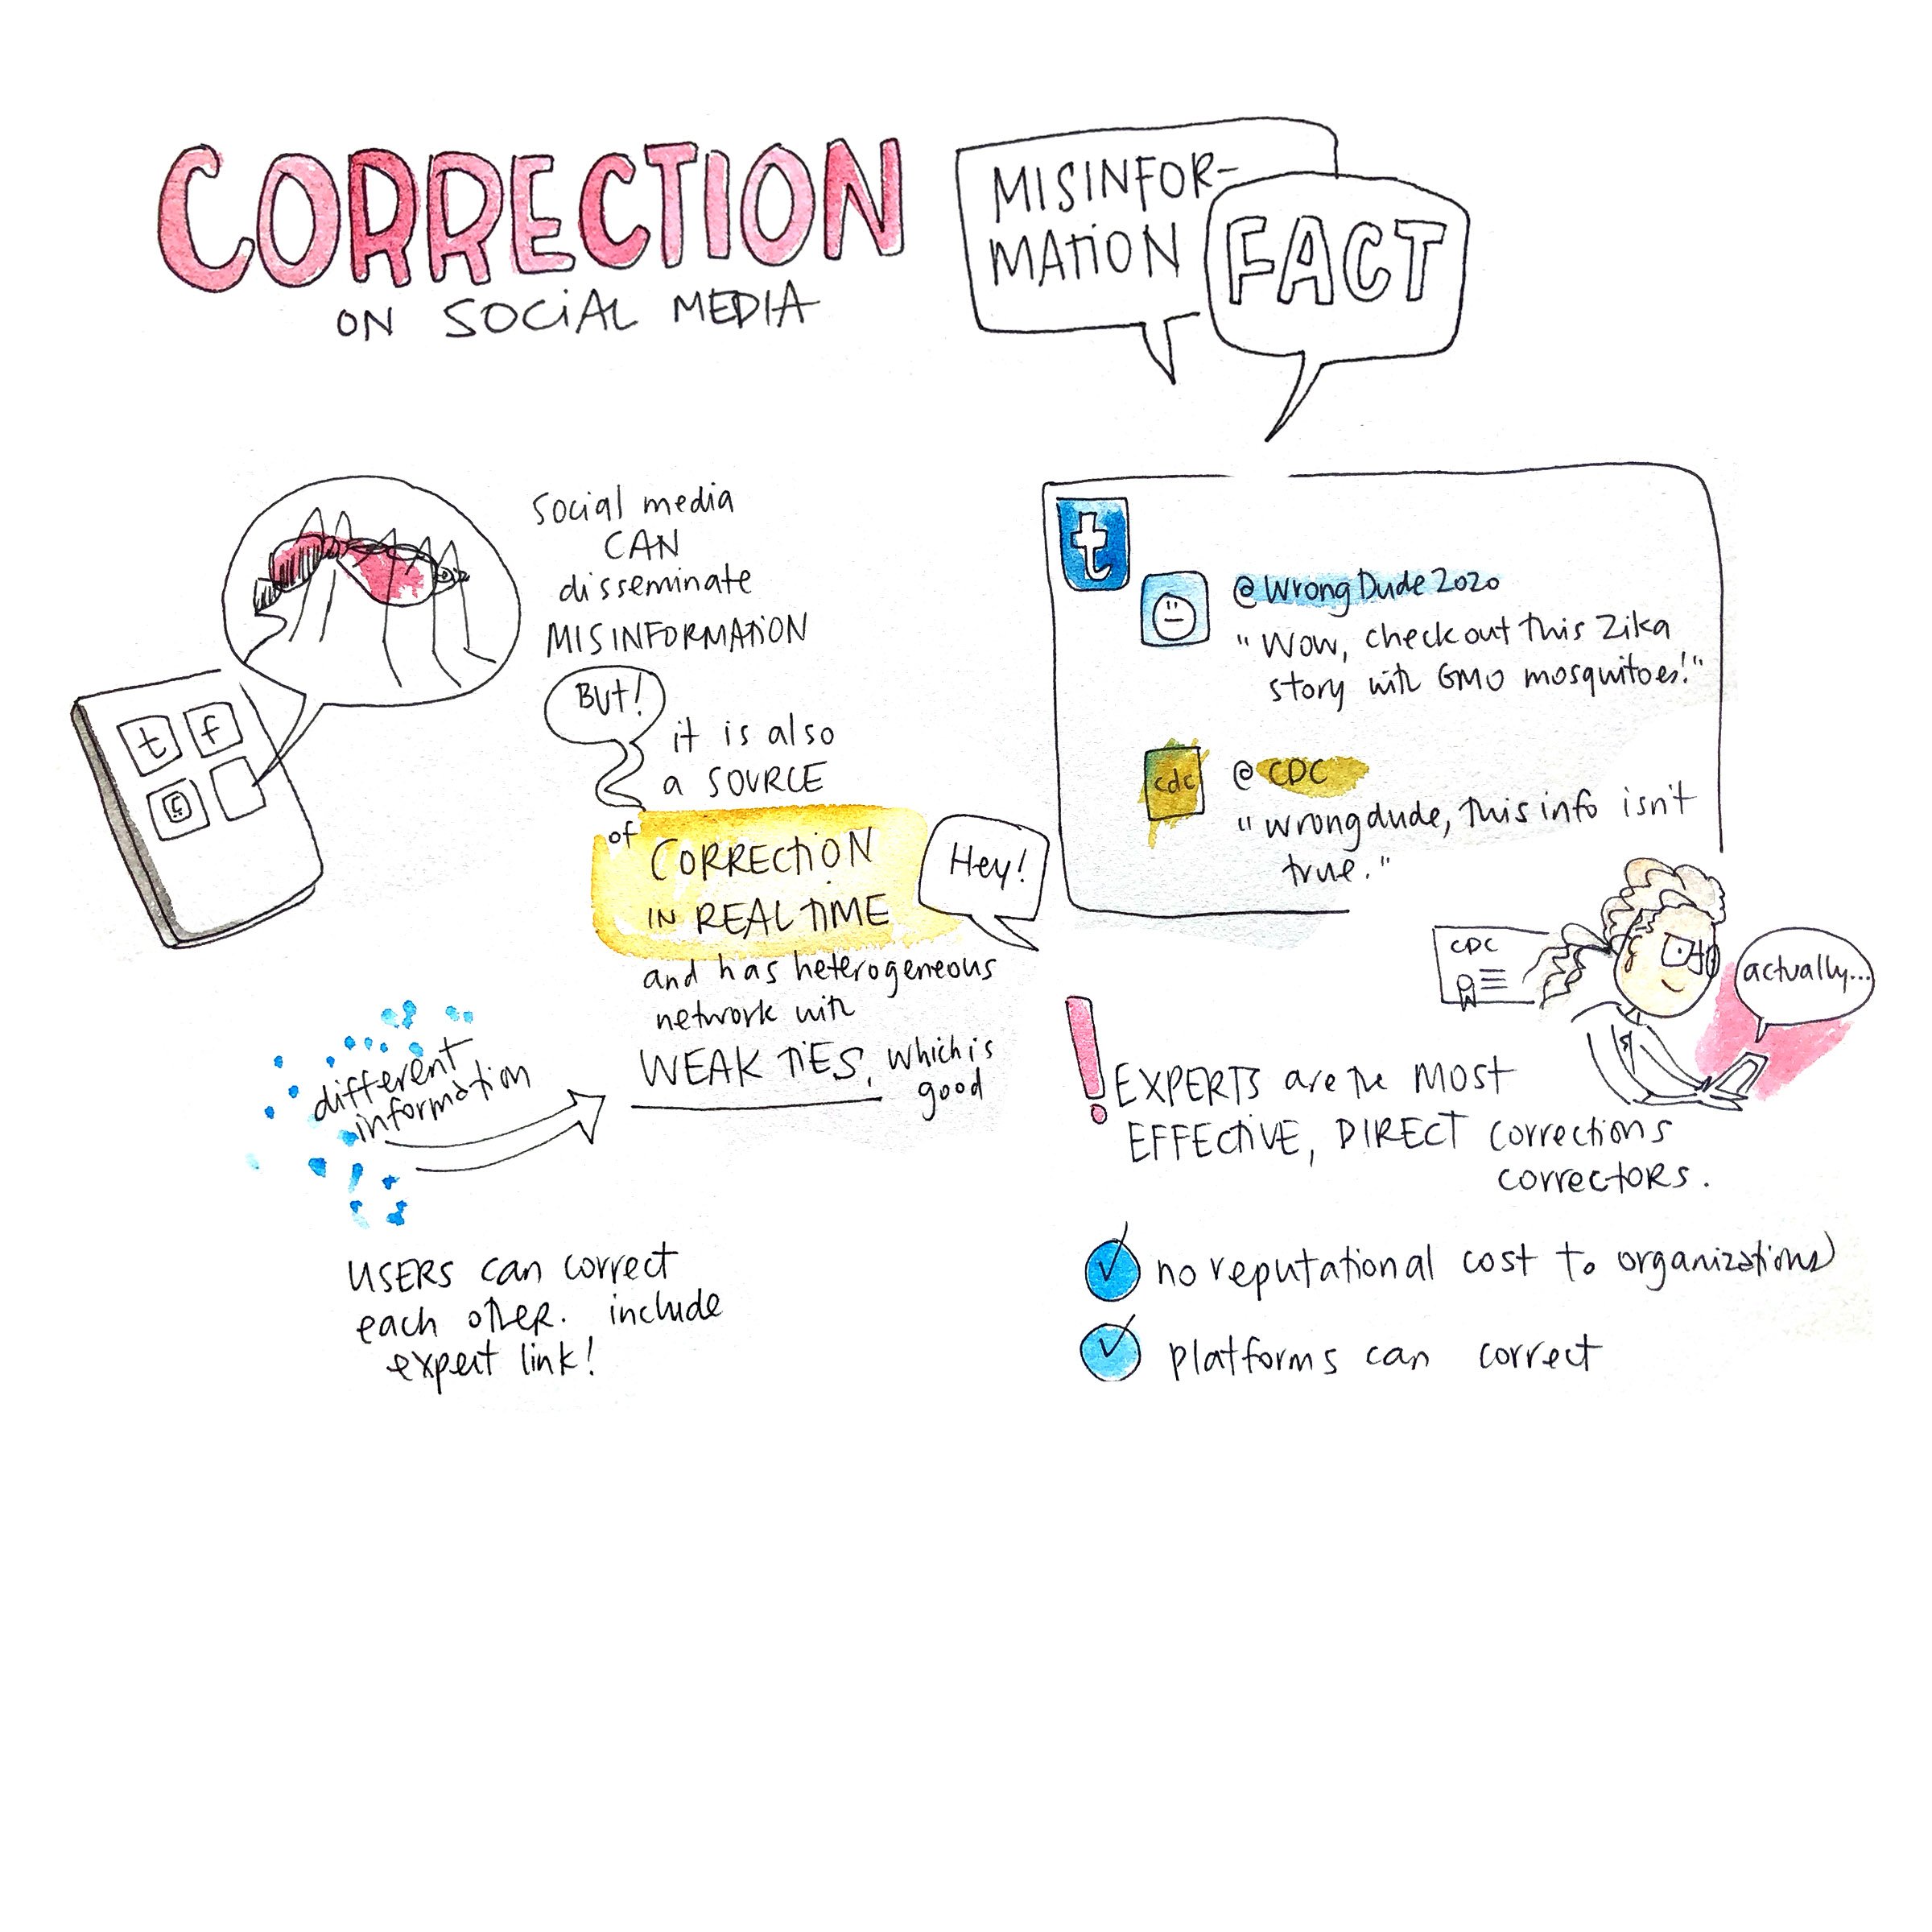 CORRECTION
ON SOCIAL MEDIA
MISINFOR-
MATION
FACT
Social media
CAN
disseminate
MISINFORMATION
BUT!
it is also
a SOURCE
of
CORRECTION
IN REAL TIME
and has heterogeneous
network with
WEAK TIES, which is
good
Hey!
t
f
different
information
USERS can correct
each other. include
expert link!
t
@WrongDude2020
"Wow, check out this Zika
story with GMO mosquitoes!"
cdc
@CDC
"wrongdude, this info isn't
true."
CDC
actually...
! EXPERTS are the MOST
EFFECTIVE, DIRECT corrections
correctors.
no reputational cost to organizations
platforms can correct